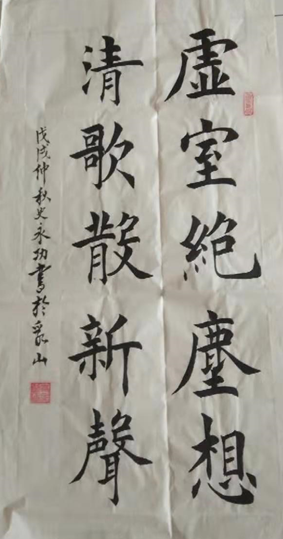 虛室絕塵想
清歌散新聲
戊戌仲秋史永功書於艮山